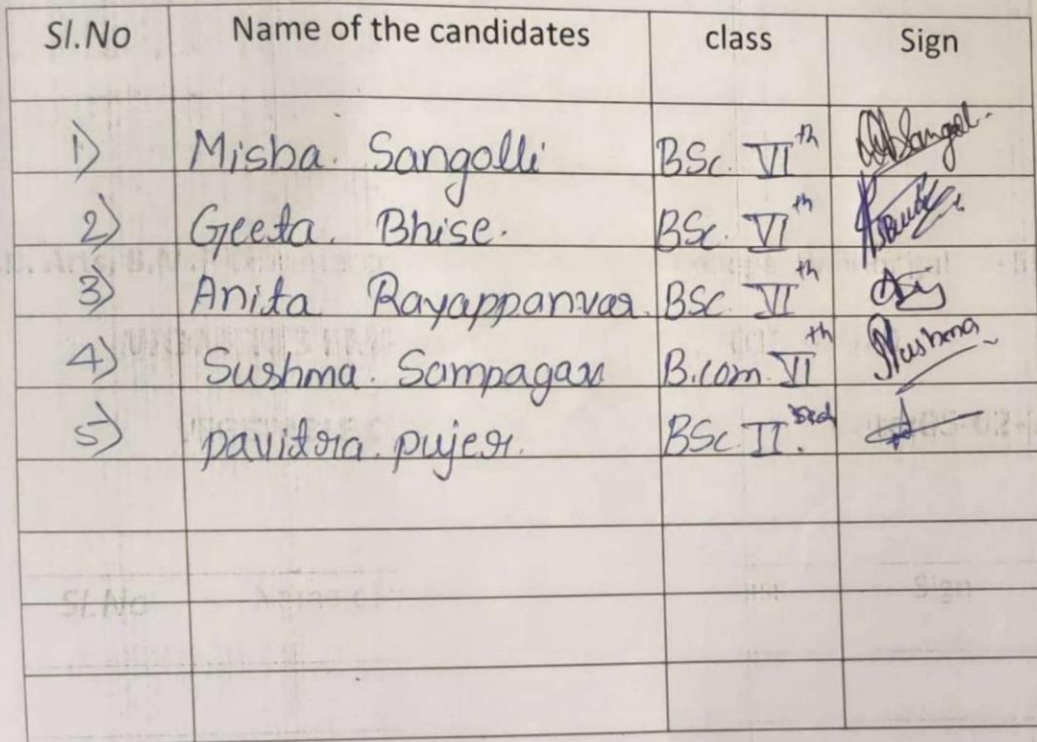 Sl.No Name of the candidates class Sign
1) Misba. Sangolli BSc. VIth
2) Geeta. Bhise. BSc. VIth
3) Anita Rayappanvar. BSc. VIth
4) Sushma. Sampagav B.com. VIth Sushma
5) pavitra. pujer. BSc. II.